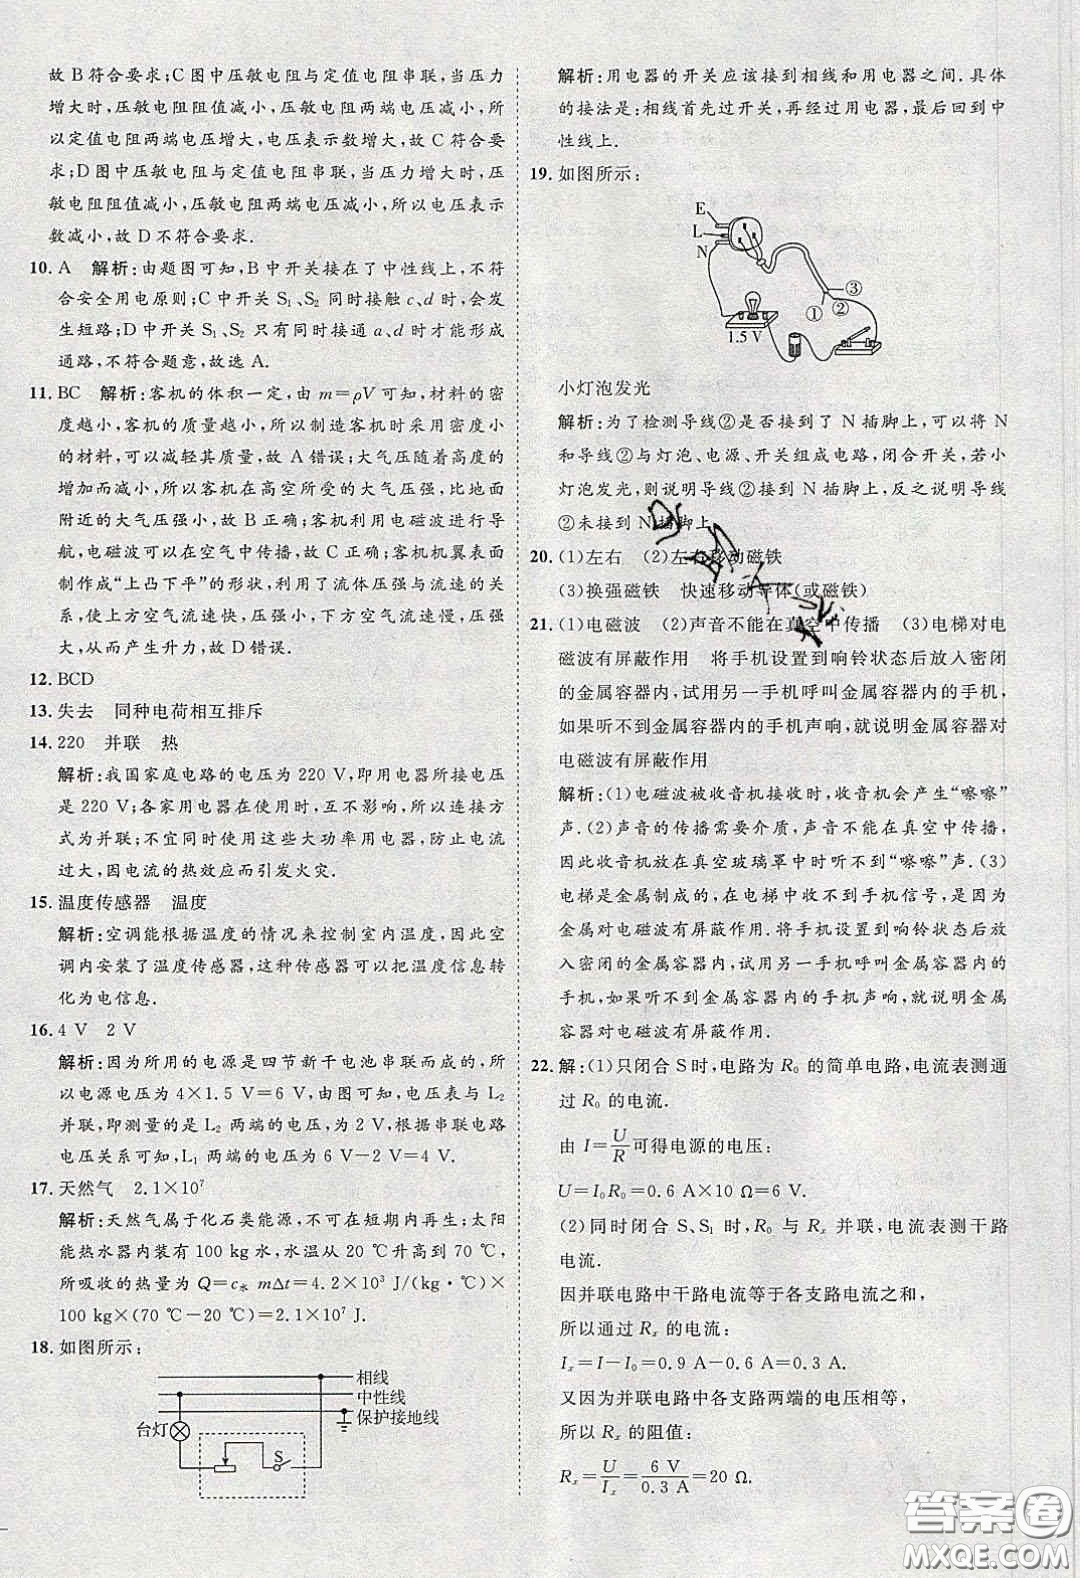 故 B 符合要求;C 图中压敏电阻与定值电阻串联,当压力
增大时,压敏电阻阻值减小,压敏电阻两端电压减小,所
以定值电阻两端电压增大,电压表示数增大,故 C 符合要
求;D 图中压敏电阻与定值电阻串联,当压力增大时,压
敏电阻阻值减小,压敏电阻两端电压减小,所以电压表示
数减小,故 D 不符合要求.
10. A 解析:由题图可知,B 中开关接在了中性线上,不符
合安全用电原则;C 中开关 S₁、S₂ 同时接触 c、d 时,会发
生短路;D 中开关 S₁、S₂ 只有同时接通 a、d 时才能形成
通路,不符合题意,故选 A.
11. BC 解析:客机的体积一定,由 m=ρV 可知,材料的密
度越小,客机的质量越小,所以制造客机应采用密度小
的材料,可以减轻其质量,故 A 错误;大气压随着高度的
增加而减小,所以客机在高空所受的大气压强,比地面
附近的大气压强小,故 B 正确;客机利用电磁波进行导
航,电磁波可以在空气中传播,故 C 正确;客机机翼表面
制作成“上凸下平”的形状,利用了流体压强与流速的关
系,使得上方空气流速快,压强小,下方空气流速慢,压强
大,从而产生升力,故 D 错误.
12. BCD
13. 失去 同种电荷相互排斥
14. 220 并联 热
解析:我国家庭电路的电压为 220 V,即用电器所接电压
是 220 V;各家用电器在使用时,互不影响,所以连接方
式为并联;不宜同时使用这些大功率用电器,防止电流
过大,因电流的热效应而引发火灾.
15. 温度传感器 温度
解析:空调能根据温度的情况来控制室内温度,因此空
调内安装了温度传感器,这种传感器可以把温度信息转
化为电信息.
16. 4 V 2 V
解析:因为所用的电源是四节新干电池串联而成的,所
以电源电压为 4×1.5 V=6 V,由图可知,电压表与 L₂
并联,即测量的是 L₂ 两端的电压,为 2 V,根据串联电路
电压关系可知,L₁ 两端的电压为 6 V-2 V=4 V.
17. 天然气 2.1×10⁷
解析:天然气属于化石类能源,不可在短期内再生;太阳
能热水器内装有 100 kg 水,水温从 20 ℃升高到 70 ℃,
所吸收的热量为 Q=c水 mΔt=4.2×10³ J/(kg·℃)×
100 kg×(70 ℃-20 ℃)=2.1×10⁷ J.
18. 如图所示:
相线
中性线
保护接地线
台灯
S
解析:用电器的开关应该接到相线和用电器之间.具体
的接法是:相线首先过开关,再经过用电器,最后回到中
性线上.
19. 如图所示:
E
L
N
③
① ②
1.5 V
小灯泡发光
解析:为了检测导线②是否接到了 N 插脚上,可以将 N
和导线②与灯泡、电源、开关组成电路,闭合开关,若小
灯泡发光,则说明导线②接到 N 插脚上,反之说明导线
②未接到 N 插脚上.
20. (1)左右 (2)左右移动磁铁
(3)换强磁铁 快速移动导体(或磁铁)
21. (1)电磁波 (2)声音不能在真空中传播 (3)电梯对电
磁波有屏蔽作用 将手机设置到响铃状态后放入密闭
的金属容器内,试用另一手机呼叫金属容器内的手机,
如果听不到金属容器内的手机声响,就说明金属容器对
电磁波有屏蔽作用
解析:(1)电磁波被收音机接收时,收音机会产生“嚓嚓”
声.(2)声音的传播需要介质,声音不能在真空中传播,
因此收音机放在真空玻璃罩中时听不到“嚓嚓”声.(3)
电梯是金属制成的,在电梯中接收不到手机信号,是因为
金属对电磁波有屏蔽作用.将手机设置到响铃状态后放
入密闭的金属容器内,试用另一手机呼叫金属容器内的
手机,如果听不到金属容器内的手机声响,就说明金属
容器对电磁波有屏蔽作用.
22. 解:(1)只闭合 S 时,电路为 R₀ 的简单电路,电流表测通
过 R₀ 的电流.
由 I=U/R 可得电源的电压:
U=I₀R₀=0.6 A×10 Ω=6 V.
(2)同时闭合 S、S₁ 时,R₀ 与 Rₓ 并联,电流表测干路
电流.
因并联电路中干路电流等于各支路电流之和,
所以通过 Rₓ 的电流:
Iₓ=I-I₀=0.9 A-0.6 A=0.3 A.
又因为并联电路中各支路两端的电压相等,
所以 Rₓ 的阻值:
Rₓ=U/Iₓ=6 V/0.3 A=20 Ω.
答案圈
MXQE.COM